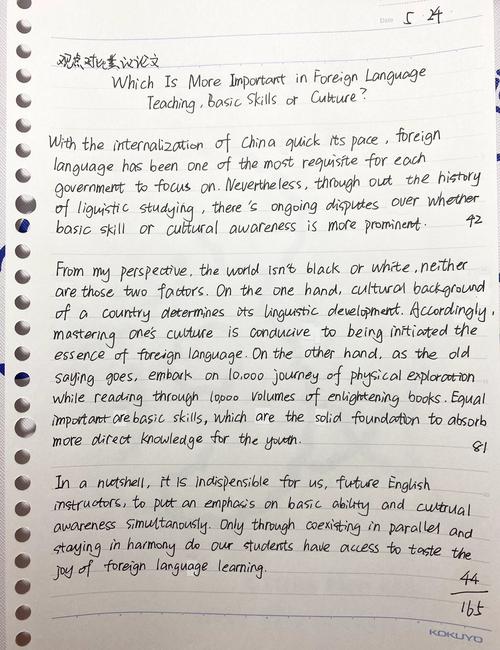 Date 5 24
观点对比类议论文
Which Is More Important in Foreign Language
Teaching, Basic Skills or Culture?
With the internalization of China quick its pace, foreign
language has been one of the most requisite for each
government to focus on. Nevertheless, through out the history
of liguistic studying, there's ongoing disputes over whether
basic skill or cultural awareness is more prominent. 42
From my perspective, the world isn't black or white, neither
are those two factors. On the one hand, cultural background
of a country determines its linguistic development. Accordingly,
mastering one's culture is conducive to being initiated the
essence of foreign language. On the other hand, as the old
saying goes, embark on 10,000 journey of physical exploration
while reading through 10,000 volumes of enlightening books. Equal
important are basic skills, which are the solid foundation to absorb
more direct knowledge for the youth. 81
In a nutshell, it is indispensible for us, future English
instructors, to put an emphasis on basic ability and cultrual
awareness simultanously. Only through coexisting in parallel and
staying in harmony do our students have access to taste the
joy of foreign language learning.
44
165
KOKUYO